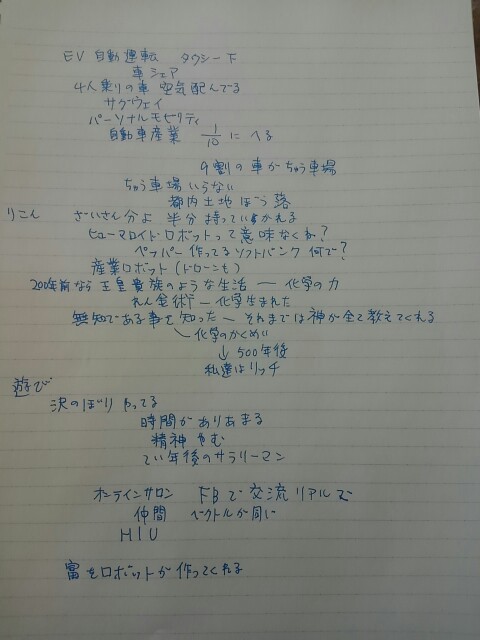 EV 自動運転 タクシー下
車シェア
4人乗りの車 空気運んでる
サグウェイ
パーソナルモビリティ
自動車産業 1/10 にへる
9割の車がちゅう車場
ちゅう車場いらない
都内土地ぼう落
りこん ざいさん分よ 半分持っていかれる
ヒューマロイドロボットって意味なくね?
ペッパー作ってるソフトバンク何で?
産業ロボット(ドローンも)
200年前なら王皇貴族のような生活 ー 化学の力
れん金術 ー 化学生まれた
無知である事を知った ー それまでは神が全て教えてくれる
化学のかくめい
↓ 500年後
私達はリッチ
遊び
沢のぼりやってる
時間がありあまる
精神やむ
てい年後のサラリーマン
オンラインサロン FBで交流リアルで
仲間 ベクトルが同じ
HIU
富をロボットが作ってくれる